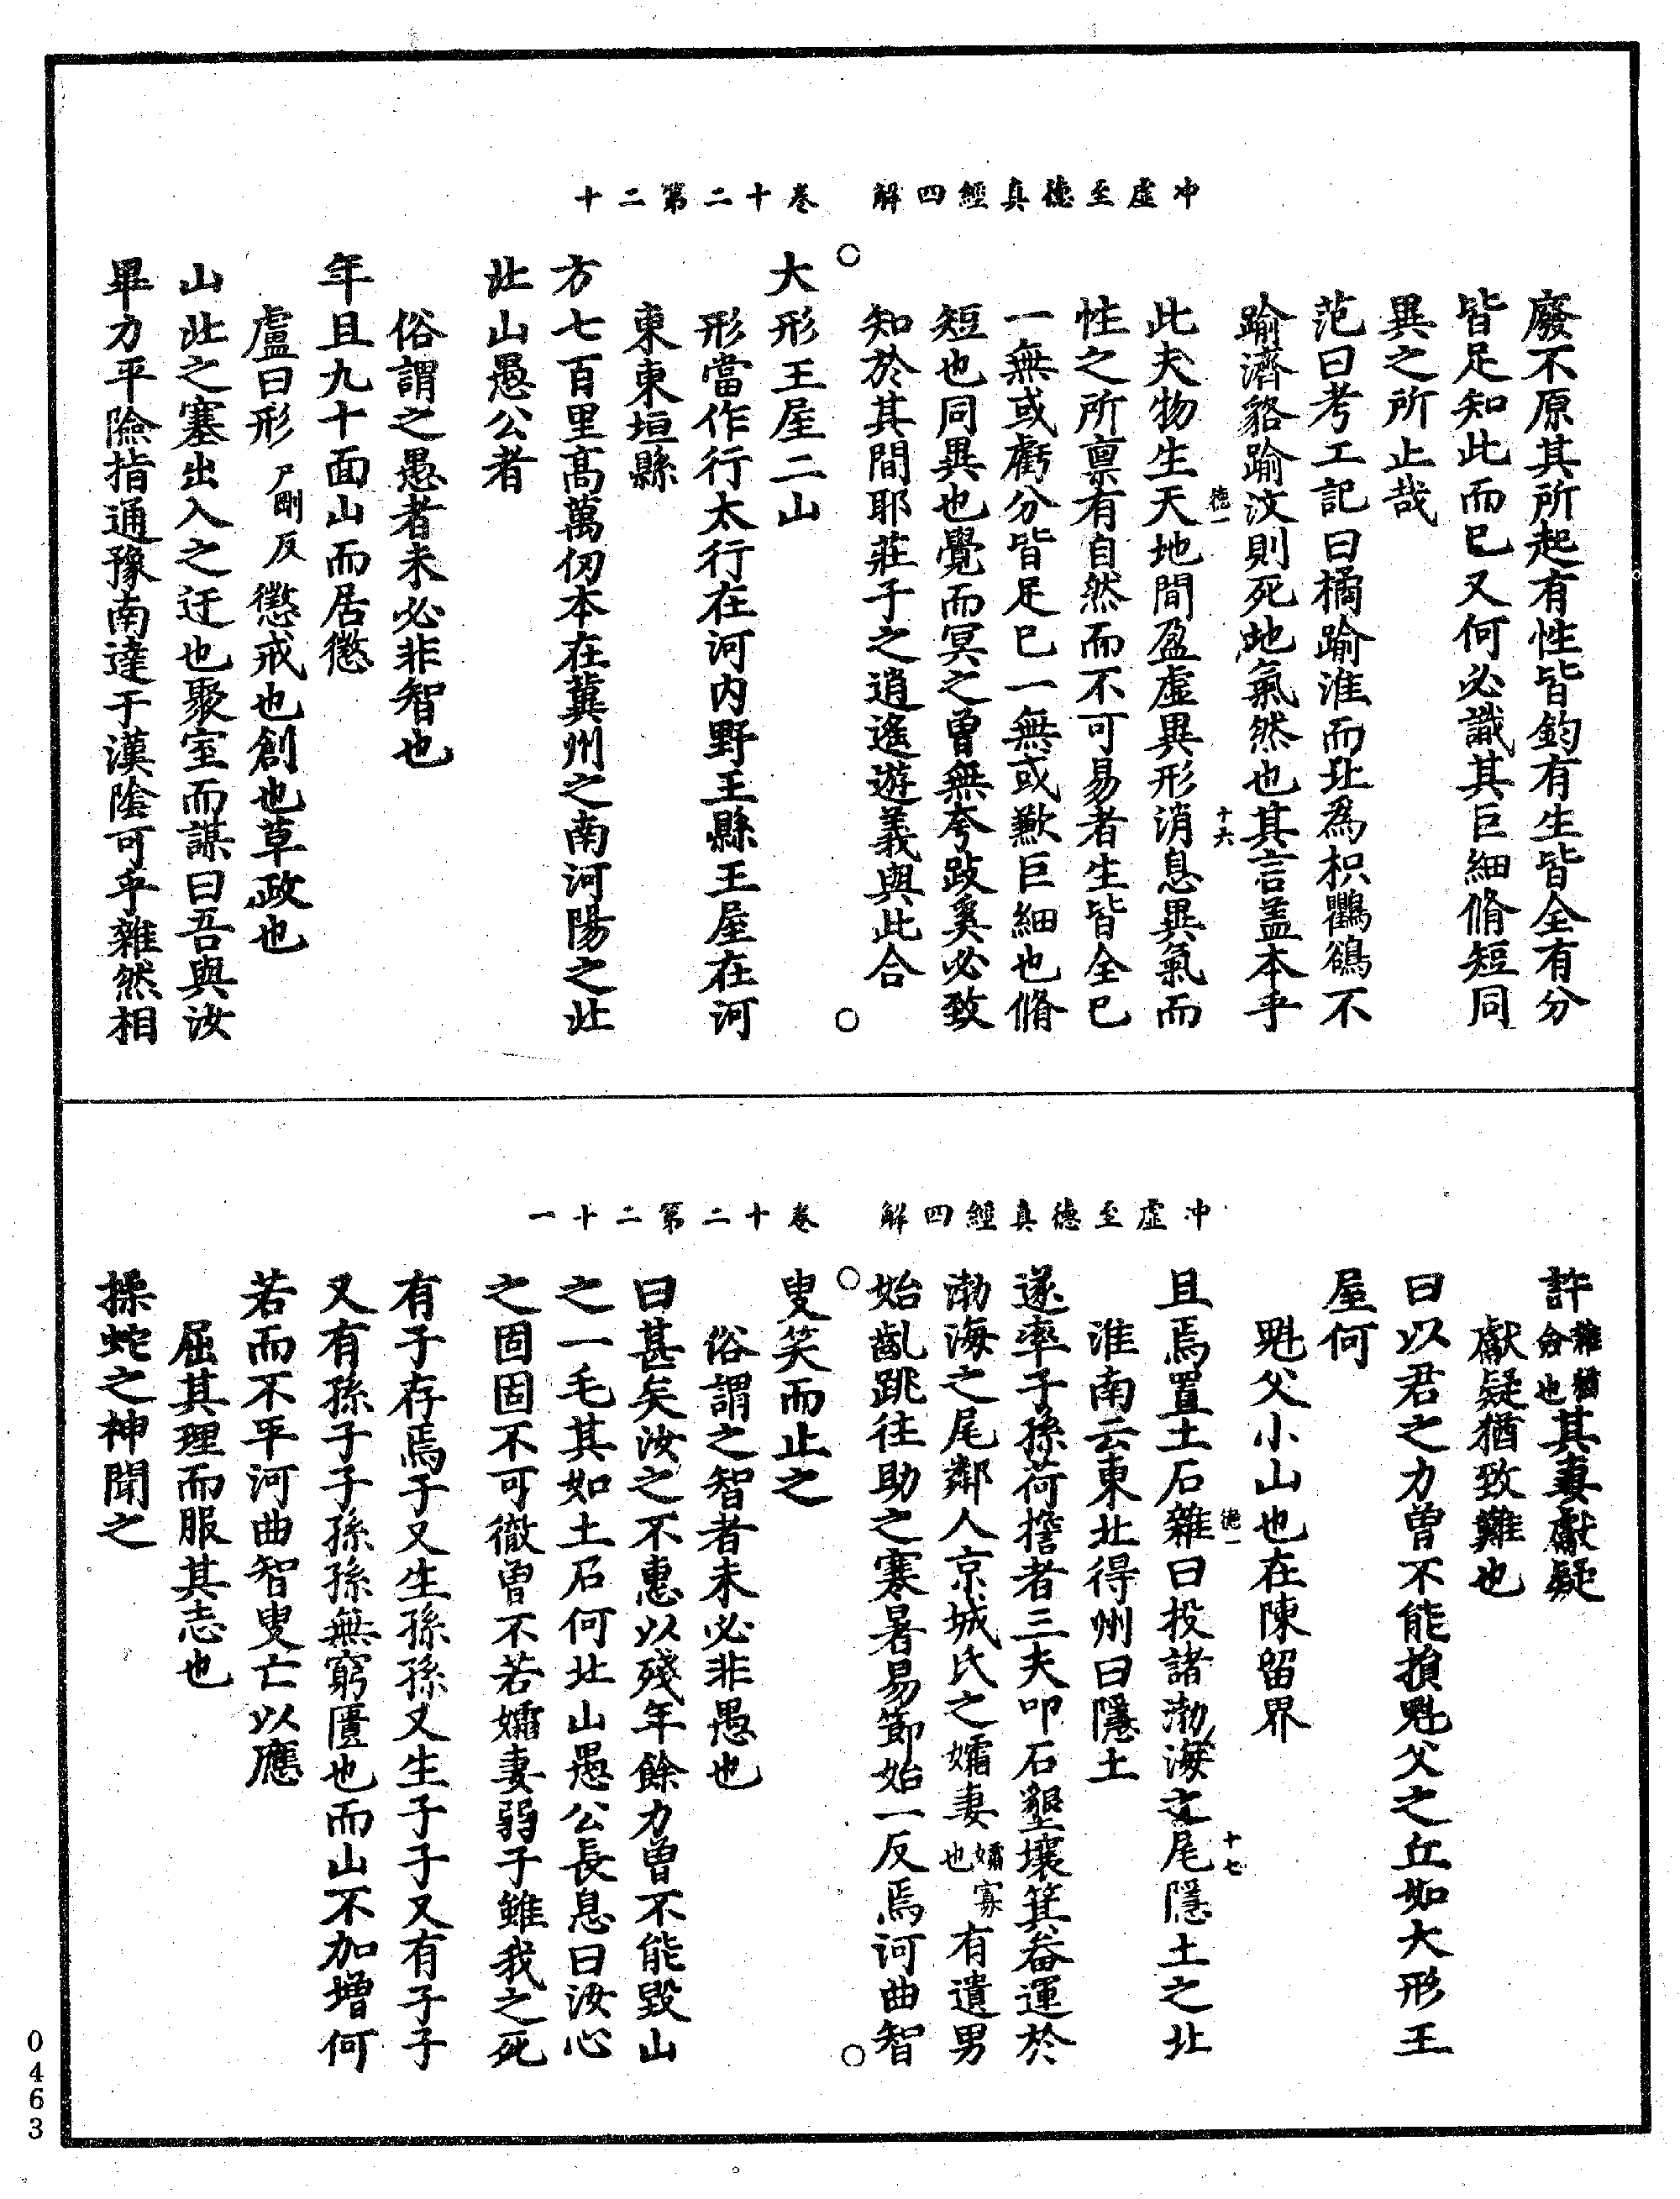 冲虛至德真經四解　卷十二第二十
廢不原其所起有性皆鈞有生皆全有分
皆足知此而已又何必識其巨細脩短同
異之所止哉
范曰考工記曰橘踰淮而北為枳鸜鵒不
踰濟貉踰汶則死地氣然也其言盖本乎
德一　十六
此夫物生天地間盈虛異形消息異氣而
性之所禀有自然而不可易者生皆全已
一無或虧分皆足已一無或歉巨細也脩
短也同異也覺而冥之曾無夸跂奚必致
知於其間耶莊子之逍遙遊義與此合
大形王屋二山
形當作行太行在河内野王縣王屋在河
東東垣縣
方七百里高萬仞本在冀州之南河陽之北
北山愚公者
俗謂之愚者未必非智也
年且九十面山而居懲
盧曰形戶剛反懲戒也創也草政也
山北之塞出入之迂也聚室而謀曰吾與汝
畢力平險指通豫南達于漢陰可乎雜然相
冲虛至德真經四解　卷十二第二十一
許雜猶僉也其妻獻疑
獻疑猶致難也
曰以君之力曾不能損魁父之丘如大形王
屋何
魁父小山也在陳留界
德一　十七
且焉置土石雜曰投諸渤海之尾隱土之北
淮南云東北得州曰隱土
遂率子孫荷擔者三夫叩石墾壤箕畚運於
渤海之尾鄰人京城氏之孀妻孀寡也有遺男
始齔跳往助之寒暑易節始一反焉河曲智
叟笑而止之
俗謂之智者未必非愚也
曰甚矣汝之不惠以殘年餘力曾不能毀山
之一毛其如土石何北山愚公長息曰汝心
之固固不可徹曾不若孀妻弱子雖我之死
有子存焉子又生孫孫又生子子又有子子
又有孫子子孫孫無窮匱也而山不加增何
若而不平河曲智叟亡以應
屈其理而服其志也
操蛇之神聞之
0463